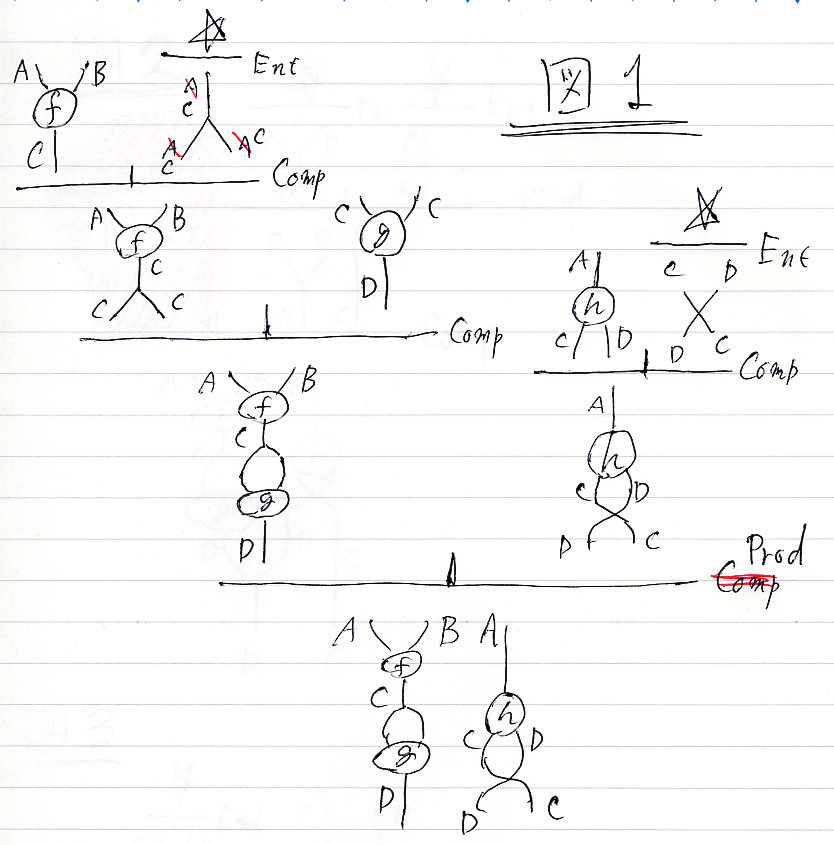 図 1
☆
Ent
A B
f
C
A
C
A A C
C
Comp
A B
f
C
C C
C C
g
D
Comp
☆
Ent
A
h
C D
C D
D C
Comp
A B
f
C
g
D
A
h
C D
D C
Prod
Comp
A B A
f
C
h
C D
g
D
D C